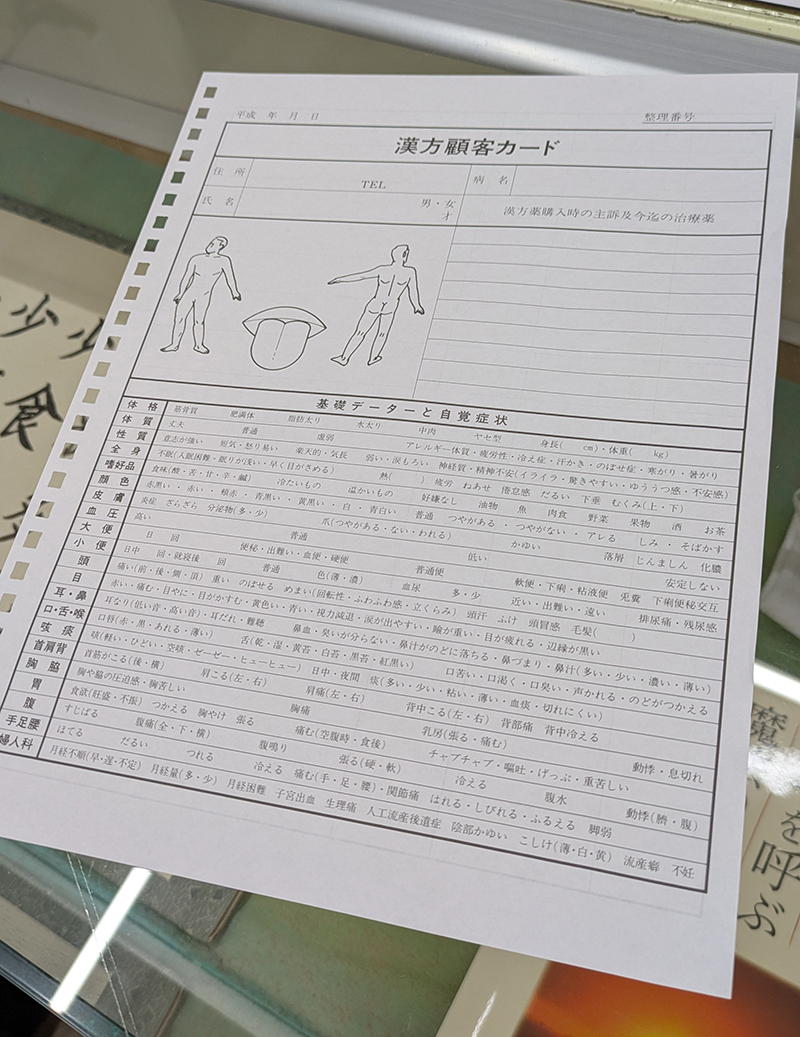 平成 年 月 日
整理番号
漢方顧客カード
住 所
TEL
病 名
氏 名
男・女
才
漢方薬購入時の主訴及今迄の治療薬
基礎データーと自覚症状
体 格 筋骨質 肥満体 脂肪太り 水太り 中肉 ヤセ型 身長( cm)・体重( kg)
体 質 丈夫 普通 虚弱 アレルギー体質・疲労性・冷え症・汗かき・のぼせ症・寒がり・暑がり
性 質 意志が強い 短気・怒り易い 楽天的・気長 弱い・涙もろい 神経質・精神不安(イライラ・驚きやすい・ゆううつ感・不安感)
全 身 不眠(入眠困難・眠りが浅い・早く目がさめる) 熱( ) 疲労 ねあせ 倦怠感 だるい 下垂 むくみ(上・下)
嗜好品 食味(酸・苦・甘・辛・鹹) 冷たいもの 温かいもの 好嫌なし 油物 魚 肉食 野菜 果物 酒 お茶
顔 色 赤黒い・赤い・頬赤・青黒い・黄黒い・白・青白い 普通 つやがある・つやがない・アレる しみ・そばかす
皮 膚 炎症 ざらざら 分泌物(多・少) 爪(つやがある・ない・われる) かゆい 落屑 じんましん 化膿
血 圧 高い 普通 低い 安定しない
大 便 日 回 便秘・出難い・血便・硬便 普通便 軟便・下痢・粘液便 兎糞 下痢便秘交互
小 便 日中 回・就寝後 回 普通 色(薄・濃) 血尿 多・少 近い・出難い・遠い 排尿痛・残尿感
頭 痛い(前・後・側・頂) 重い のぼせる めまい(回転性・ふわふわ感・立くらみ) 頭汗 ふけ 頭冒感 毛髪( )
目 赤い・痛む・目やに・目がかすむ・黄色い・青い・視力減退・涙が出やすい・瞼が重い・目が疲れる・辺縁が黒い
耳・鼻 耳なり(低い音・高い音)・耳だれ・難聴 鼻血・臭いが分らない・鼻汁がのどに落ちる・鼻づまり・鼻汁(多い・少い・濃い・薄い)
口・舌・喉 口唇(赤・黒・あれる・薄い) 舌(乾・湿・黄苔・白苔・黒苔・紅黒い) 口苦い・口渇く・口臭い・声かれる・のどがつかえる
咳 痰 咳(軽い・ひどい・空咳・ゼーゼー・ヒューヒュー) 日中・夜間 痰(多い・少い・粘い・薄い・血痰・切れにくい)
首肩背 首筋がこる(後・横) 肩こる(左・右) 肩痛(左・右) 背中こる(左・右) 背部痛 背中冷える
胸 脇 胸や脇の圧迫感・胸苦しい 胸痛 乳房(張る・痛む) 動悸・息切れ
胃 食欲(旺盛・不振) つかえる 胸やけ 張る 痛む(空腹時・食後) チャプチャプ・嘔吐・げっぷ・重苦しい
腹 すじばる 腹痛(全・下・横) 腹鳴り 張る(硬・軟) 冷える 腹水 動悸(臍・腹)
手足腰 ほてる だるい つれる 冷える 痛む(手・足・腰)・関節痛 はれる・しびれる・ふるえる 脚弱
婦人科 月経不順(早・遅・不定) 月経量(多・少) 月経困難 子宮出血 生理痛 人工流産後遺症 陰部かゆい こしけ(薄・白・黄) 流産癖 不妊
少少
食
を呼ぶ